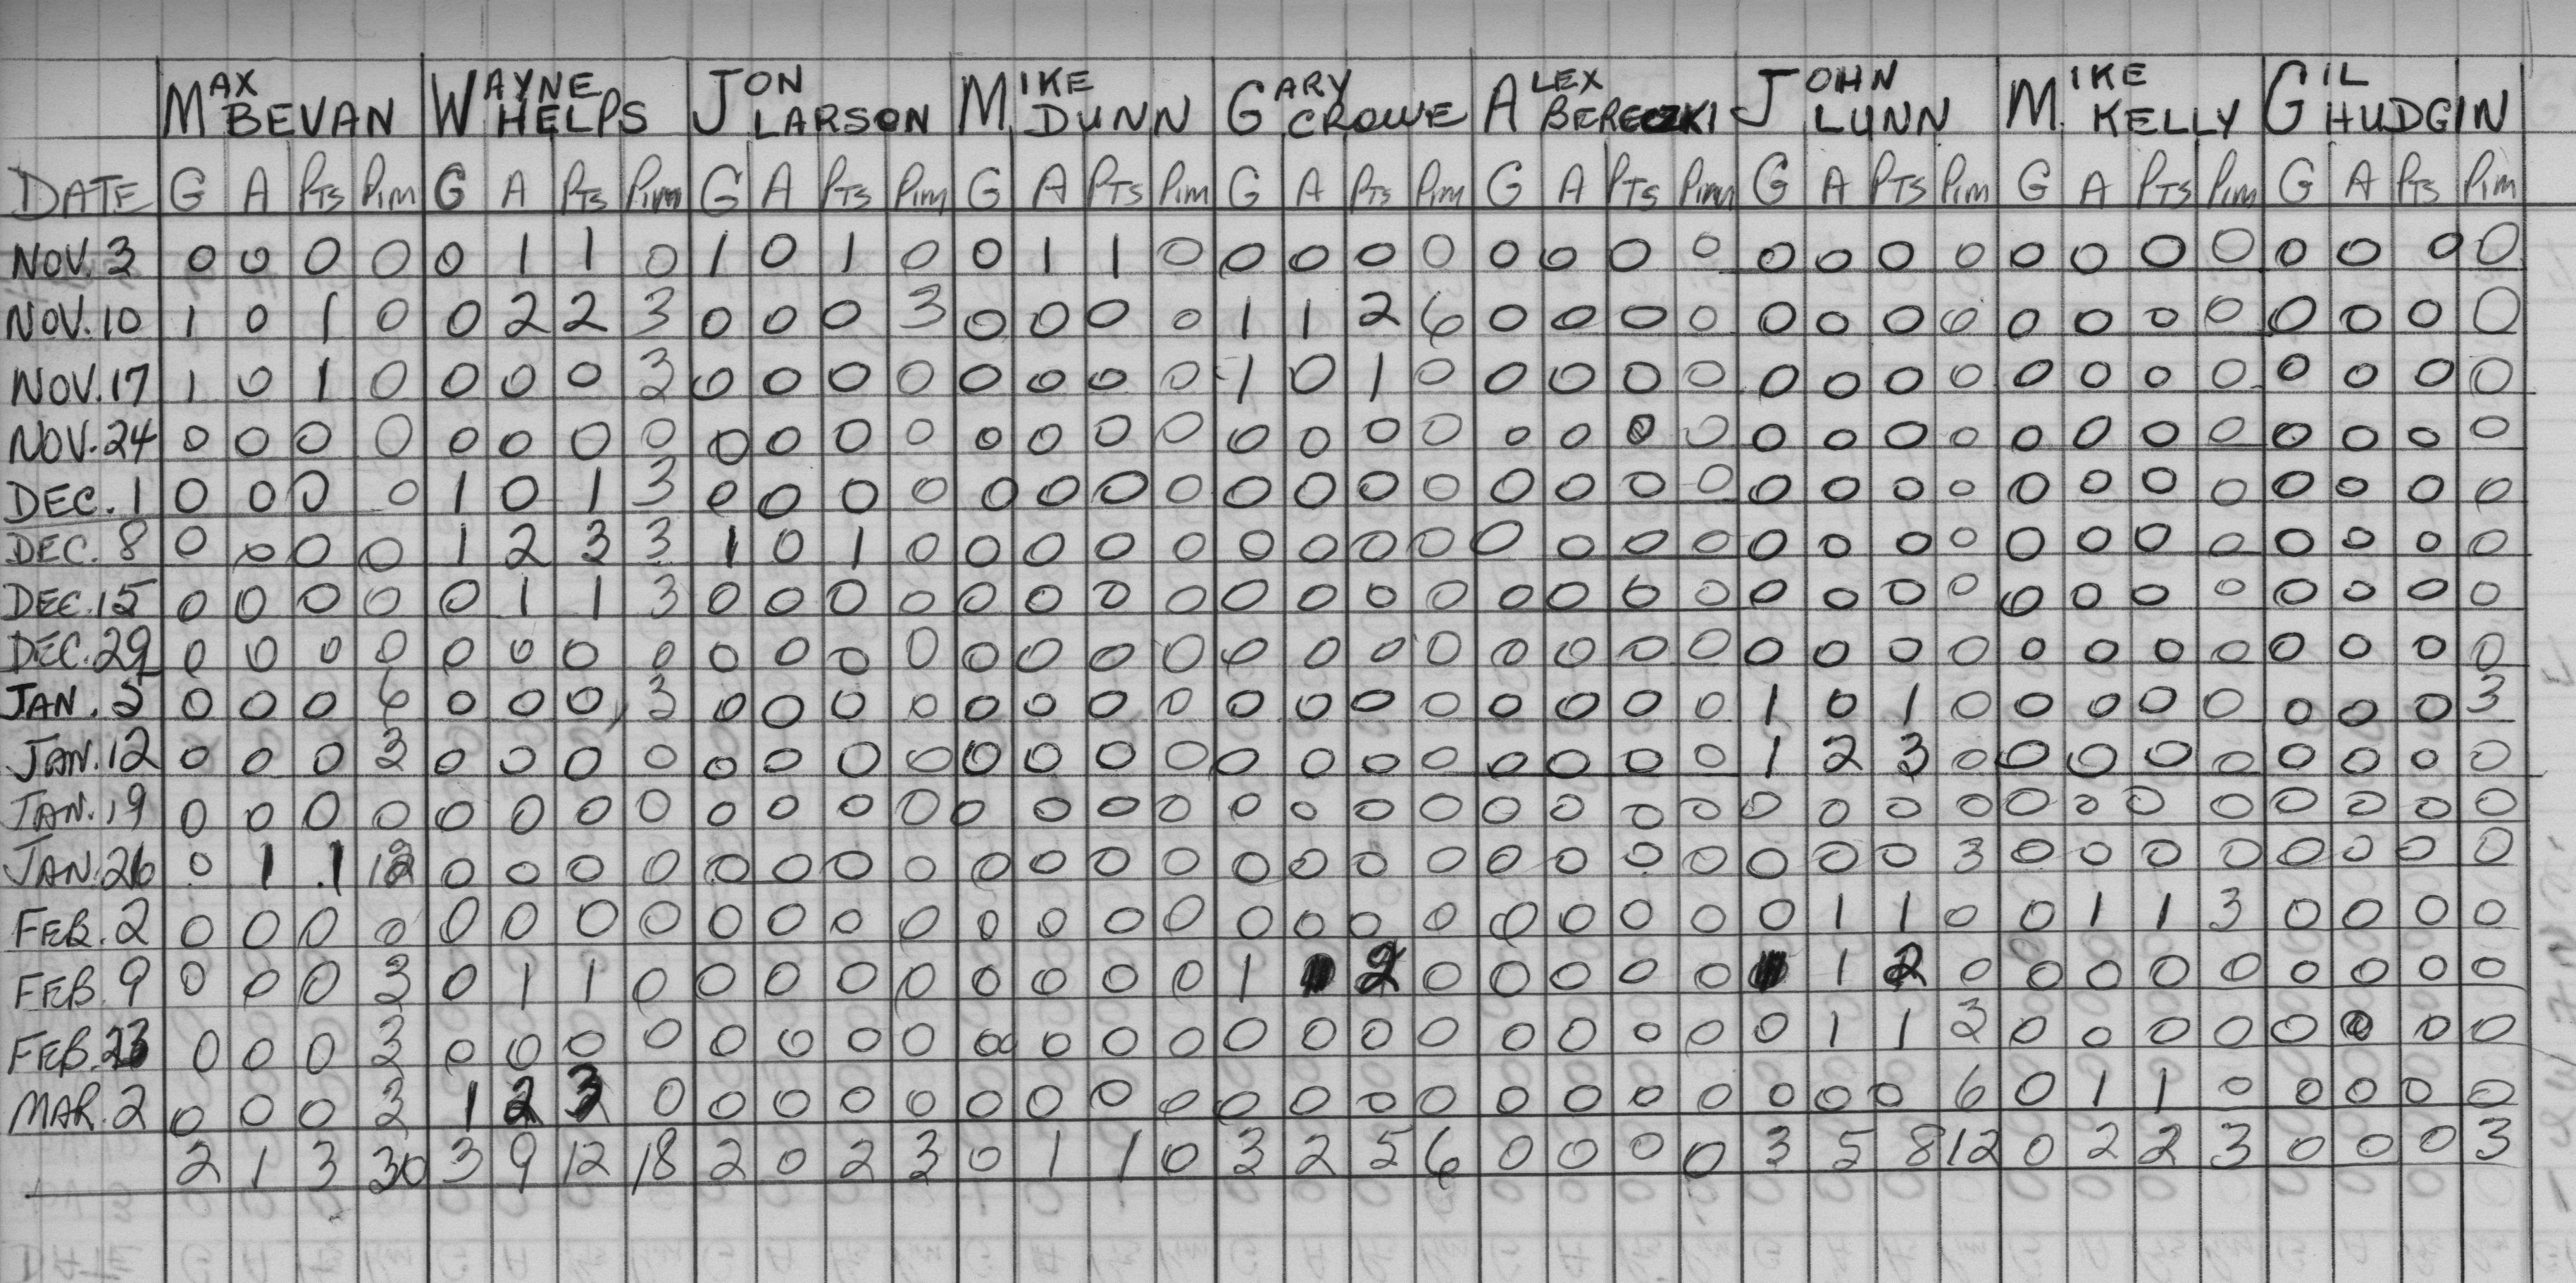 MAX BEVAN WAYNE HELPS JON LARSON MIKE DUNN GARY CROWE ALEX BERECZKI JOHN LUNN MIKE KELLY GIL HUDGIN
DATE G A PTS PIM G A PTS PIM G A PTS PIM G A PTS PIM G A PTS PIM G A PTS PIM G A PTS PIM G A PTS PIM G A PTS PIM
NOV. 3 0 0 0 0 0 1 1 0 1 0 1 0 0 1 1 0 0 0 0 0 0 0 0 0 0 0 0 0 0 0 0 0 0 0 0 0
NOV. 10 1 0 1 0 0 2 2 3 0 0 0 3 0 0 0 0 1 1 2 6 0 0 0 0 0 0 0 0 0 0 0 0 0 0 0 0
NOV. 17 1 0 1 0 0 0 0 3 0 0 0 0 0 0 0 0 1 0 1 0 0 0 0 0 0 0 0 0 0 0 0 0 0 0 0 0
NOV. 24 0 0 0 0 0 0 0 0 0 0 0 0 0 0 0 0 0 0 0 0 0 0 0 0 0 0 0 0 0 0 0 0 0 0 0 0
DEC. 1 0 0 0 0 1 0 1 3 0 0 0 0 0 0 0 0 0 0 0 0 0 0 0 0 0 0 0 0 0 0 0 0 0 0 0 0
DEC. 8 0 0 0 0 1 2 3 3 1 0 1 0 0 0 0 0 0 0 0 0 0 0 0 0 0 0 0 0 0 0 0 0 0 0 0 0
DEC. 15 0 0 0 0 0 1 1 3 0 0 0 0 0 0 0 0 0 0 0 0 0 0 0 0 0 0 0 0 0 0 0 0 0 0 0 0
DEC. 29 0 0 0 0 0 0 0 0 0 0 0 0 0 0 0 0 0 0 0 0 0 0 0 0 0 0 0 0 0 0 0 0 0 0 0 0
JAN. 5 0 0 0 6 0 0 0 3 0 0 0 0 0 0 0 0 0 0 0 0 0 0 0 0 1 0 1 0 0 0 0 0 0 0 0 3
JAN. 12 0 0 0 3 0 0 0 0 0 0 0 0 0 0 0 0 0 0 0 0 0 0 0 0 1 2 3 0 0 0 0 0 0 0 0 0
JAN. 19 0 0 0 0 0 0 0 0 0 0 0 0 0 0 0 0 0 0 0 0 0 0 0 0 0 0 0 0 0 0 0 0 0 0 0 0
JAN. 26 0 1 1 12 0 0 0 0 0 0 0 0 0 0 0 0 0 0 0 0 0 0 0 0 0 0 0 3 0 0 0 0 0 0 0 0
FEB. 2 0 0 0 0 0 0 0 0 0 0 0 0 0 0 0 0 0 0 0 0 0 0 0 0 0 1 1 0 0 1 1 3 0 0 0 0
FEB. 9 0 0 0 3 0 1 1 0 0 0 0 0 0 0 0 0 1 1 2 0 0 0 0 0 1 1 2 0 0 0 0 0 0 0 0 0
FEB. 23 0 0 0 3 0 0 0 0 0 0 0 0 0 0 0 0 0 0 0 0 0 0 0 0 0 1 1 3 0 0 0 0 0 0 0 0
MAR. 2 0 0 0 3 1 2 3 0 0 0 0 0 0 0 0 0 0 0 0 0 0 0 0 0 0 0 0 6 0 1 1 0 0 0 0 0
2 1 3 30 3 9 12 18 2 0 2 3 0 1 1 0 3 2 5 6 0 0 0 0 3 5 8 12 0 2 2 3 0 0 0 3